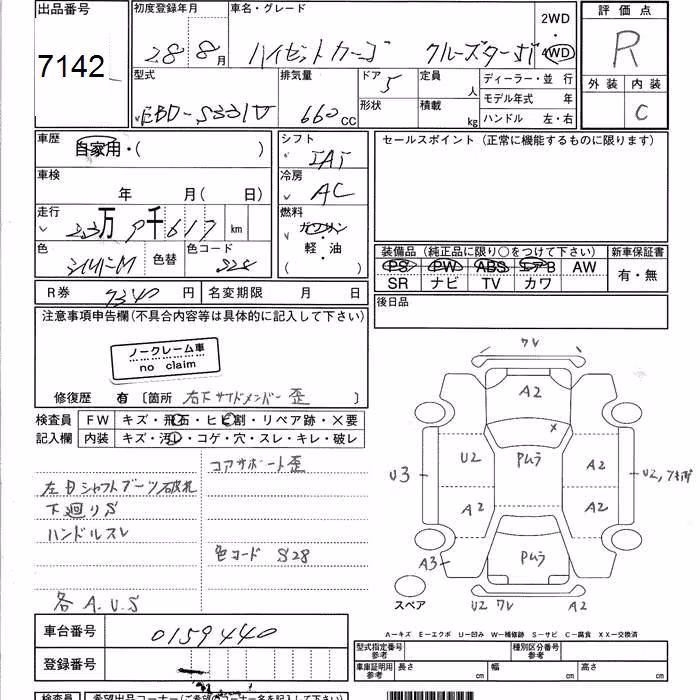 出品番号 初度登録年月 車名・グレード 2WD 評価点
7142 28年8月 ハイゼットカーゴ クルーズターボ 4WD R
型式 排気量 ドア 5 定員 人 ディーラー・並行 外装 内装
EBD-S331V 660cc 形状 積載 kg モデル年式 年 C
ハンドル 左・右
車歴 自家用・( ) シフト IAT セールスポイント (正常に機能するものに限ります)
車検 年 月( 日) 冷房 AC
走行 23万9千617 km 燃料 ガソリン
軽・油
( )
色 シルバーM 色替 色コード S28
装備品 (純正品に限り○をつけて下さい) 新車保証書
PS PW ABS エアB AW 有・無
SR ナビ TV カワ
R券 7340円 名変期限 月 日 後日品
注意事項申告欄(不具合内容等は具体的に記入して下さい)
ノークレーム車
no claim
修復歴 有 〔箇所 右下サイドメンバー歪 〕
検査員 FW キズ・飛石・ヒビ割・リペア跡・×要
記入欄 内装 キズ・汚レ・コゲ・穴・スレ・キレ・破レ
コアサポート歪
シャフトブーツ破れ
下廻りS
ハンドルスレ
色コード S28
各 A.U.S
ワレ
A2
×
U3 U2 Pムラ A2 U2,
A2 A2
A3 Pムラ
スペア U2 ワレ A2
A-キズ E-エクボ U-凹み W-補修跡 S-サビ C-腐食 XX-交換済
車台番号 0159440
登録番号
型式指定番号 参考 種別区分番号 参考
車庫証明用 参考 長さ cm 幅 cm 高さ cm
検査員 希望出品コーナー(コーナー名を記入して下さい)